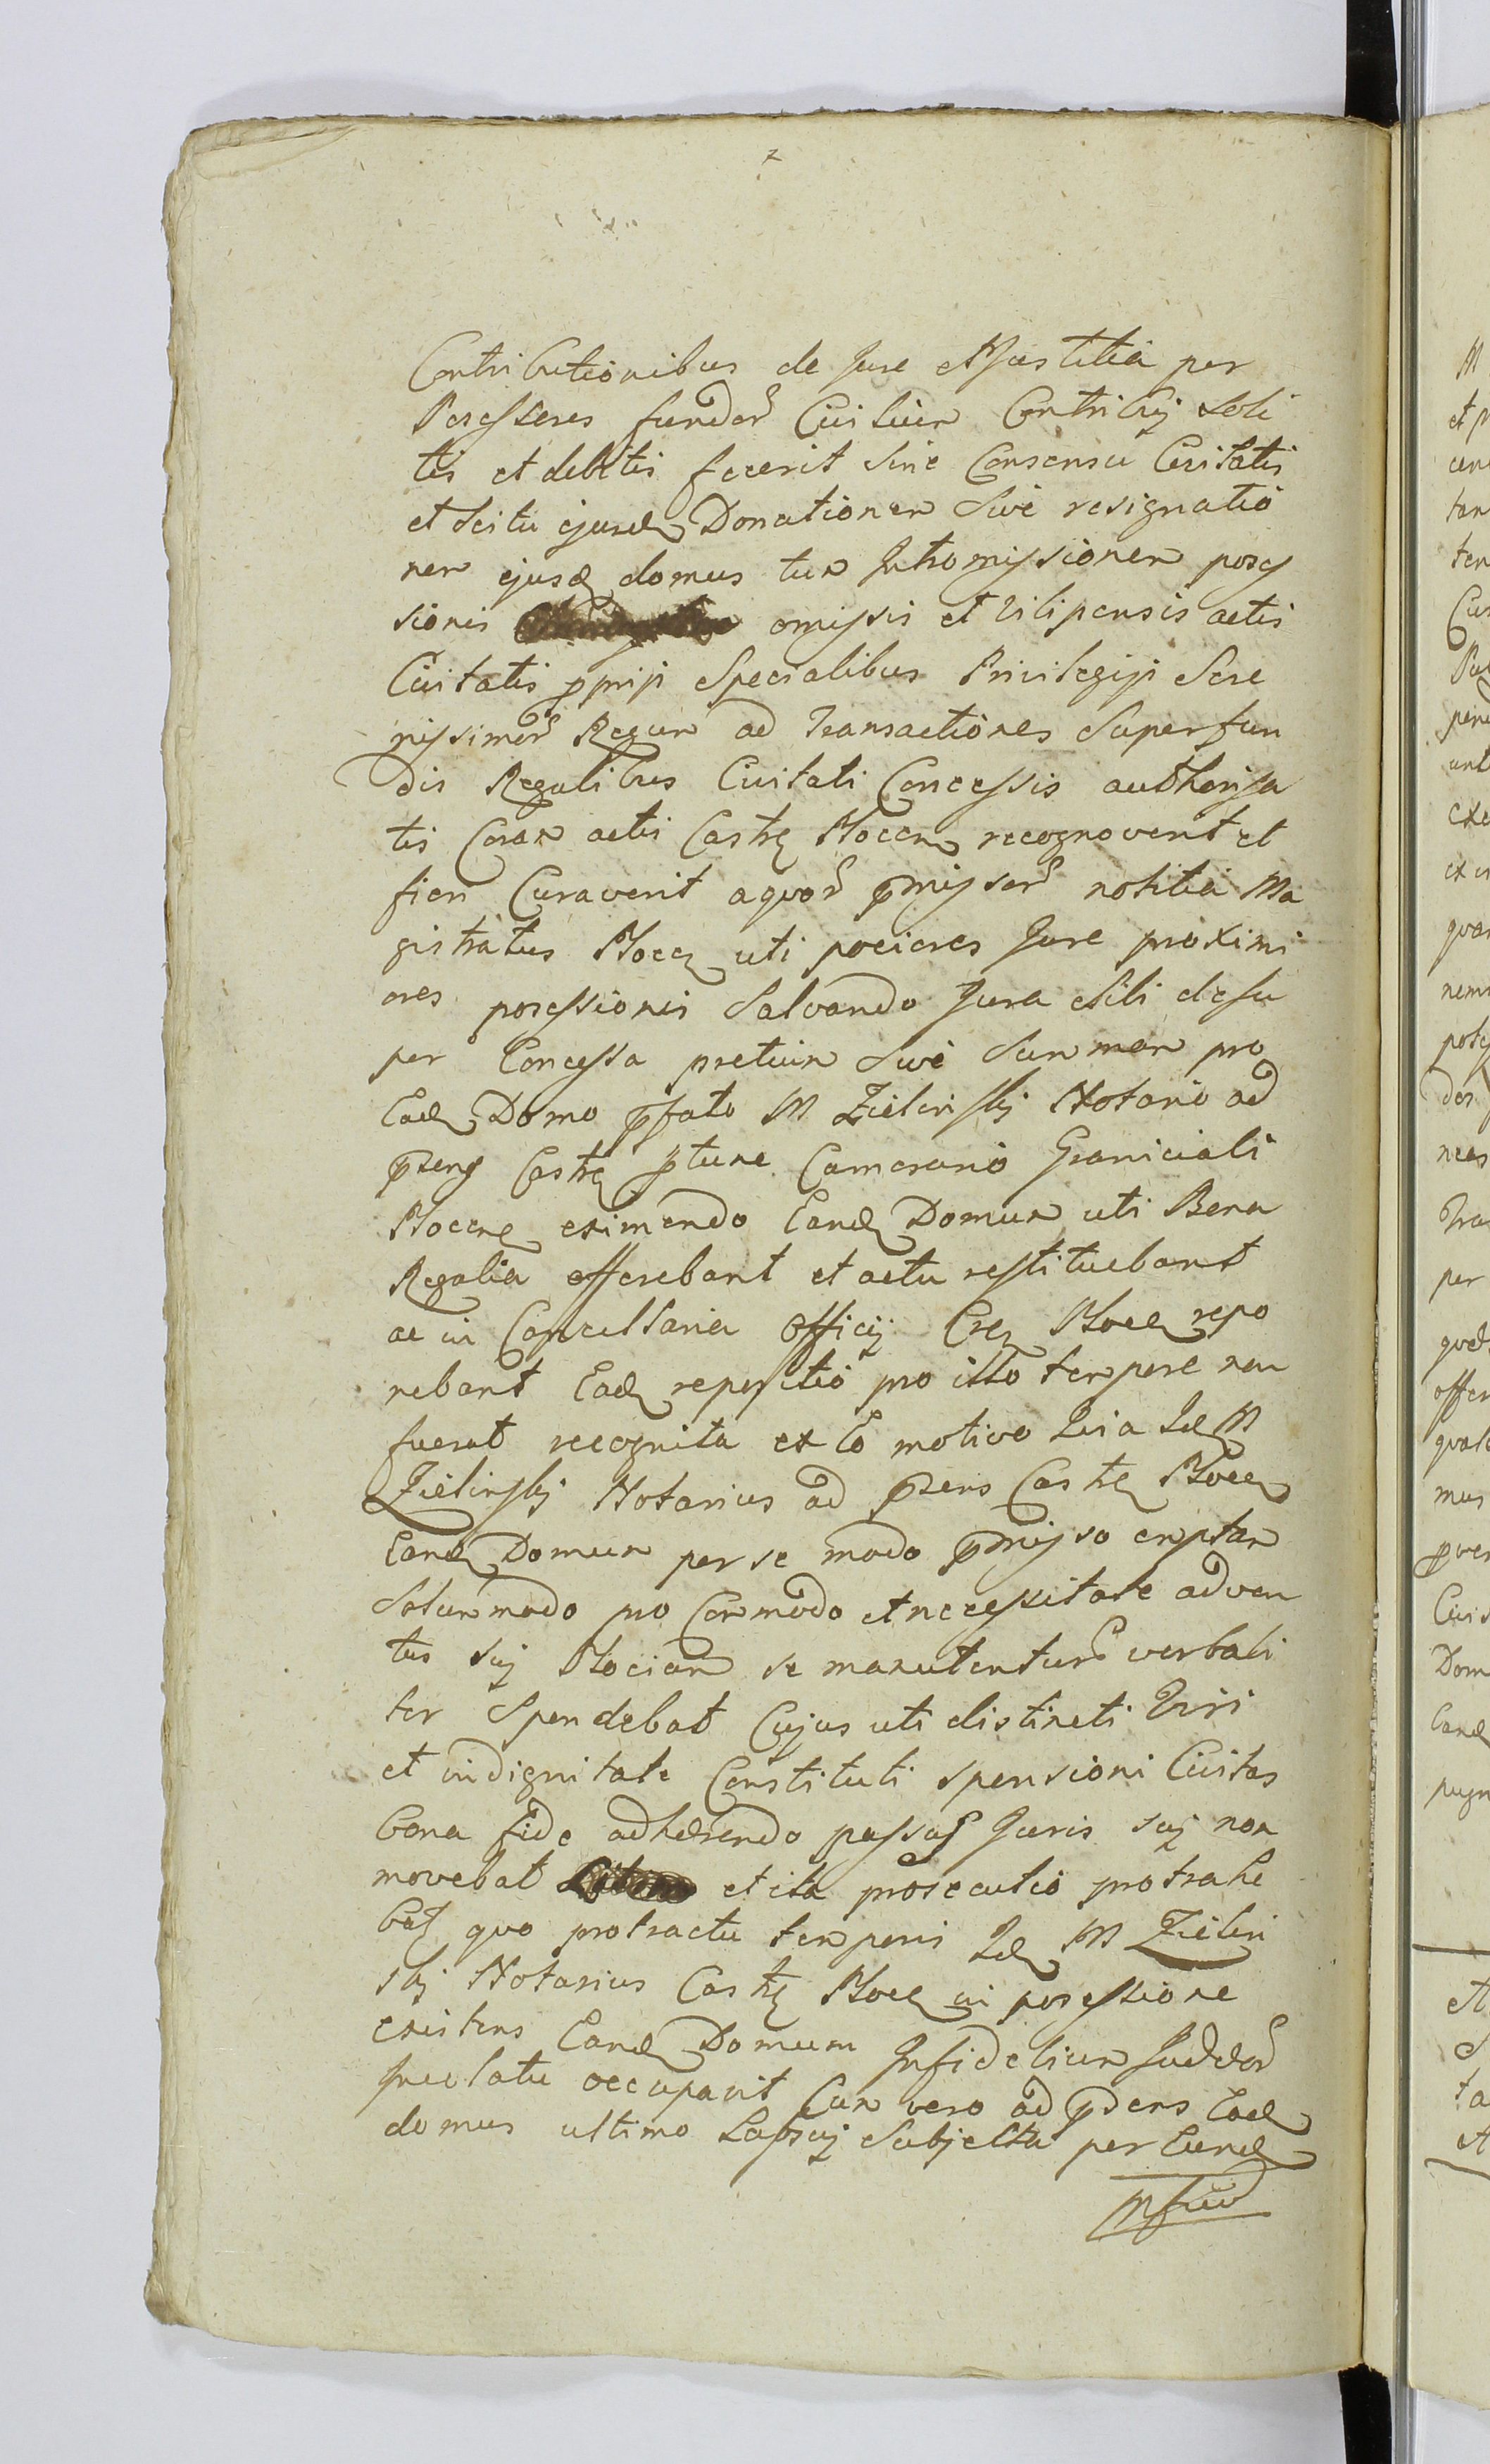 Contributionibus de Jure et Justitia per
Possessores fundor Civilium Contribuj Soli
tis et debitis fecerit Sine Consensu Civitatis
et Scitu ejusd Donationem Sive resignatio
nem ejusd domus tum Intromissionem posses
sionis omissis et vilipensis actis
Civitatis pprijs Specialibus Privilegijs Sere
nissimor Regum ad Transactiones Super fun
dis Regalibus Civitati Concessis authorisa
tis Coram actis Castr Plocen recognoverit et
fieri Curaverit a quor pmissor notitia Ma
gistratus Plocen uti pociores Jure proximi
ores possessionis Salvando Jura Sibi desu
per Concessa pretium Sive Summam pro
Ead Domo pfato M Zielinskj Notario ad
psens Castr ptunc Camerario Graniciali
Plocen eximendo Eand Domum uti Bona
Regalia offerebant et actu restituebant
ac in Cancellaria Officij Cren Plocen repo
nebant Ead repositio pro illo tempore non
fuerat recognita ex Eo motivo Quia Id M
Zielinskj Notarius ad psens Castr Plocen
Eand Domum per se modo pmisso emptam
Solummodo pro Commodo et necessitate adven
tus suj Plociam se manutentur verbali
ter Spondebat Cujus uti distincti Viri
et in dignitate Constituti sponsioni Civitas
bona fide adhærendo passus Juris suj non
movebat et ita prosecutio protrahe
bat quo protractu temporis Id M Zielin
skj Notarius Castr Plocen in possessione
existens Eand Domum Infidelium Judæor
Incolatu occupavit Cum vero ad psens Ead
domus ultimo Lapsuj Subjecta per Eund